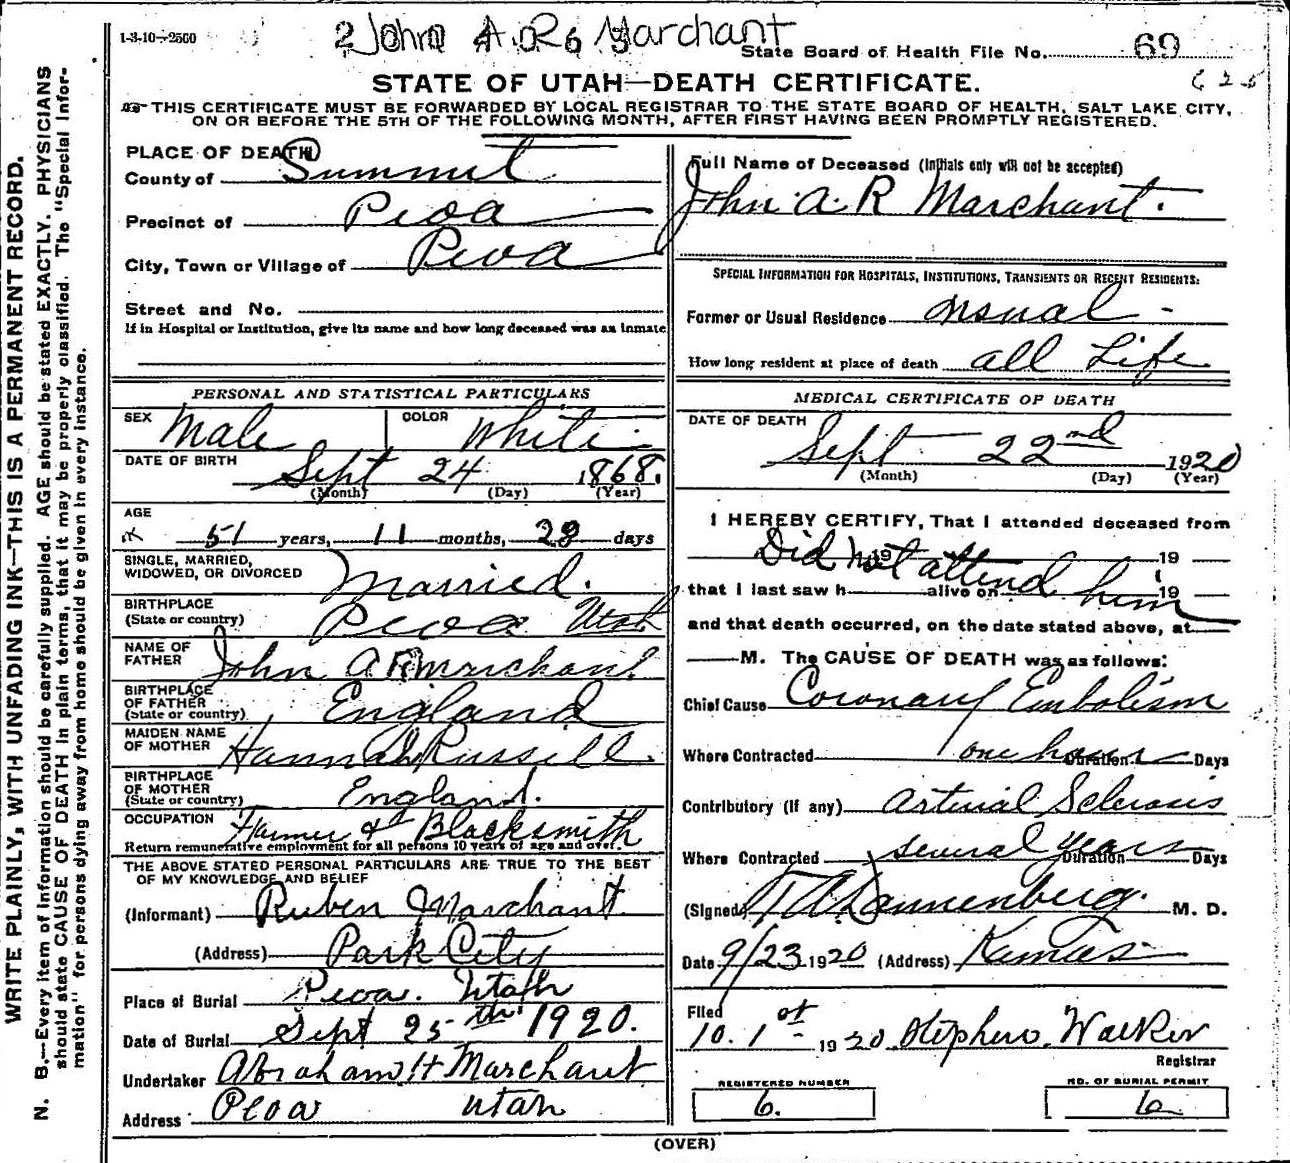 1-3-10-2500
John A. R. Marchant
State Board of Health File No. 69
625
STATE OF UTAH—DEATH CERTIFICATE.
THIS CERTIFICATE MUST BE FORWARDED BY LOCAL REGISTRAR TO THE STATE BOARD OF HEALTH, SALT LAKE CITY,
ON OR BEFORE THE 5TH OF THE FOLLOWING MONTH, AFTER FIRST HAVING BEEN PROMPTLY REGISTERED.
WRITE PLAINLY, WITH UNFADING INK—THIS IS A PERMANENT RECORD.
N. B.—Every item of information should be carefully supplied. AGE should be stated EXACTLY. PHYSICIANS
should state CAUSE OF DEATH in plain terms, that it may be properly classified. The "Special Infor-
mation" for persons dying away from home should be given in every instance.
PLACE OF DEATH
County of Summit
Precinct of Peoa
City, Town or Village of Peoa
Street and No.
If in Hospital or Institution, give its name and how long deceased was an inmate
PERSONAL AND STATISTICAL PARTICULARS
SEX Male COLOR White
DATE OF BIRTH
Sept 24 1868.
(Month) (Day) (Year)
AGE
51 years, 11 months, 28 days
SINGLE, MARRIED,
WIDOWED, OR DIVORCED Married.
BIRTHPLACE
(State or country) Peoa Utah
NAME OF
FATHER John A R Marchant.
BIRTHPLACE
OF FATHER
(State or country) England
MAIDEN NAME
OF MOTHER Hannah Russill.
BIRTHPLACE
OF MOTHER
(State or country) England.
OCCUPATION Farmer & Blacksmith
Return remunerative employment for all persons 10 years of age and over.
THE ABOVE STATED PERSONAL PARTICULARS ARE TRUE TO THE BEST
OF MY KNOWLEDGE AND BELIEF
(Informant) Ruben Marchant
(Address) Park City
Place of Burial Peoa. Utah
Date of Burial Sept 25th 1920.
Undertaker Abraham H Marchant
Address Peoa Utah
Full Name of Deceased (Initials only will not be accepted)
John A R Marchant.
SPECIAL INFORMATION FOR HOSPITALS, INSTITUTIONS, TRANSIENTS OR RECENT RESIDENTS:
Former or Usual Residence usual -
How long resident at place of death all Life
MEDICAL CERTIFICATE OF DEATH
DATE OF DEATH
Sept 22nd 1920
(Month) (Day) (Year)
I HEREBY CERTIFY, That I attended deceased from
Did not attend him
19 19
that I last saw h alive on 19
and that death occurred, on the date stated above, at
M. The CAUSE OF DEATH was as follows:
Chief Cause Coronary Embolism
Where Contracted one hour Duration Days
Contributory (if any) Arterial Sclerosis
Where Contracted several years Duration Days
(Signed) Dannenberg. M. D.
Date 9/23 1920 (Address) Kamas
Filed
10. 1st 1920 Stephen Walker
Registrar
REGISTERED NUMBER
6.
NO. OF BURIAL PERMIT
6
(OVER)